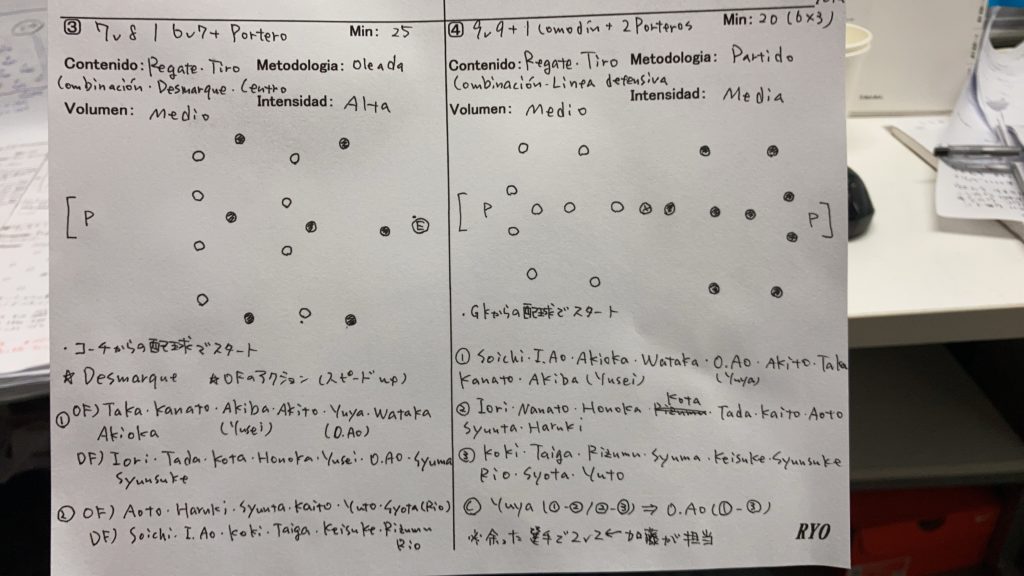 ③ 7v8 | 6v7+ Portero Min: 25
Contenido: Regate・Tiro Metodologia: Oleada
Combinación・Desmarque・Centro
Intensidad: Alta
Volumen: Medio
P
E
・コーチからの配球でスタート
☆ Desmarque ☆OFのアクション(スピードup)
① OF) Taka・Kanato・Akiba・Akito・Yuya・Wataka
Akioka (Yusei) (O.Ao)
DF) Iori・Tada・Kota・Honoka・Yusei・O.Ao・Syuma
Syunsuke
② OF) Aoto・Haruki・Syunta・Kaito・Yuto・Syota(Rio)
DF) Soichi・I.Ao・Koki・Taiga・Keisuke・Rizumu
Rio
④ 9v9+1 Comodín+2 Porteros Min: 20 (6×3)
Contenido: Regate・Tiro Metodologia: Partido
Combinación・Linea defensiva
Intensidad: Media
Volumen: Medio
P
P
・GKからの配球でスタート
① Soichi・I.Ao・Akioka・Wataka・O.Ao・Akito・Taka
(Yuya)
Kanato・Akiba(Yusei)
② Iori・Nanato・Honoka・Rizumu Kota・Tada・Kaito・Aoto
Syunta・Haruki
③ Koki・Taiga・Rizumu・Syuma・Keisuke・Syunsuke
Rio・Syota・Yuto
Ⓒ Yuya (①-②/②-③) ⇒ O.Ao(①-③)
※余った選手で2v2←加藤が担当
RYO